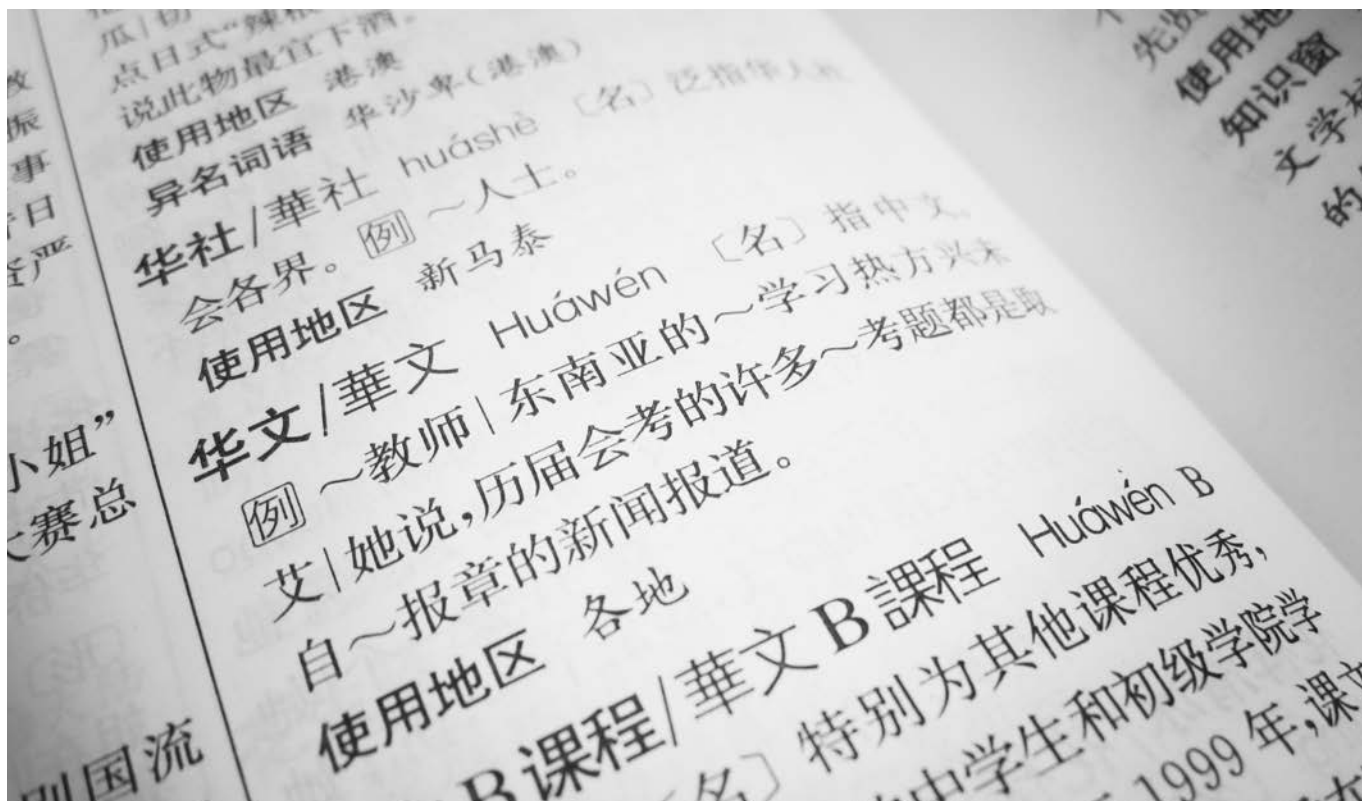 敦
振
事
日
严
。
小姐”
大赛总
别国流
瓜|切
点日式“辣根
说此物最宜下酒。
使用地区 港澳
异名词语 华沙卑(港澳)
华社/華社 huáshè 〔名〕泛指华人社
会各界。例～人士。
使用地区 新马泰
华文/華文 Huáwén 〔名〕指中文。
例～教师|东南亚的～学习热方兴未
艾|她说,历届会考的许多～考题都是取
自～报章的新闻报道。
使用地区 各地
B课程/華文B課程 Huáwén B
名〕特别为其他课程优秀,
中学生和初级学院学
1999年,课文
先贤
使用地
知识窗
文学
的